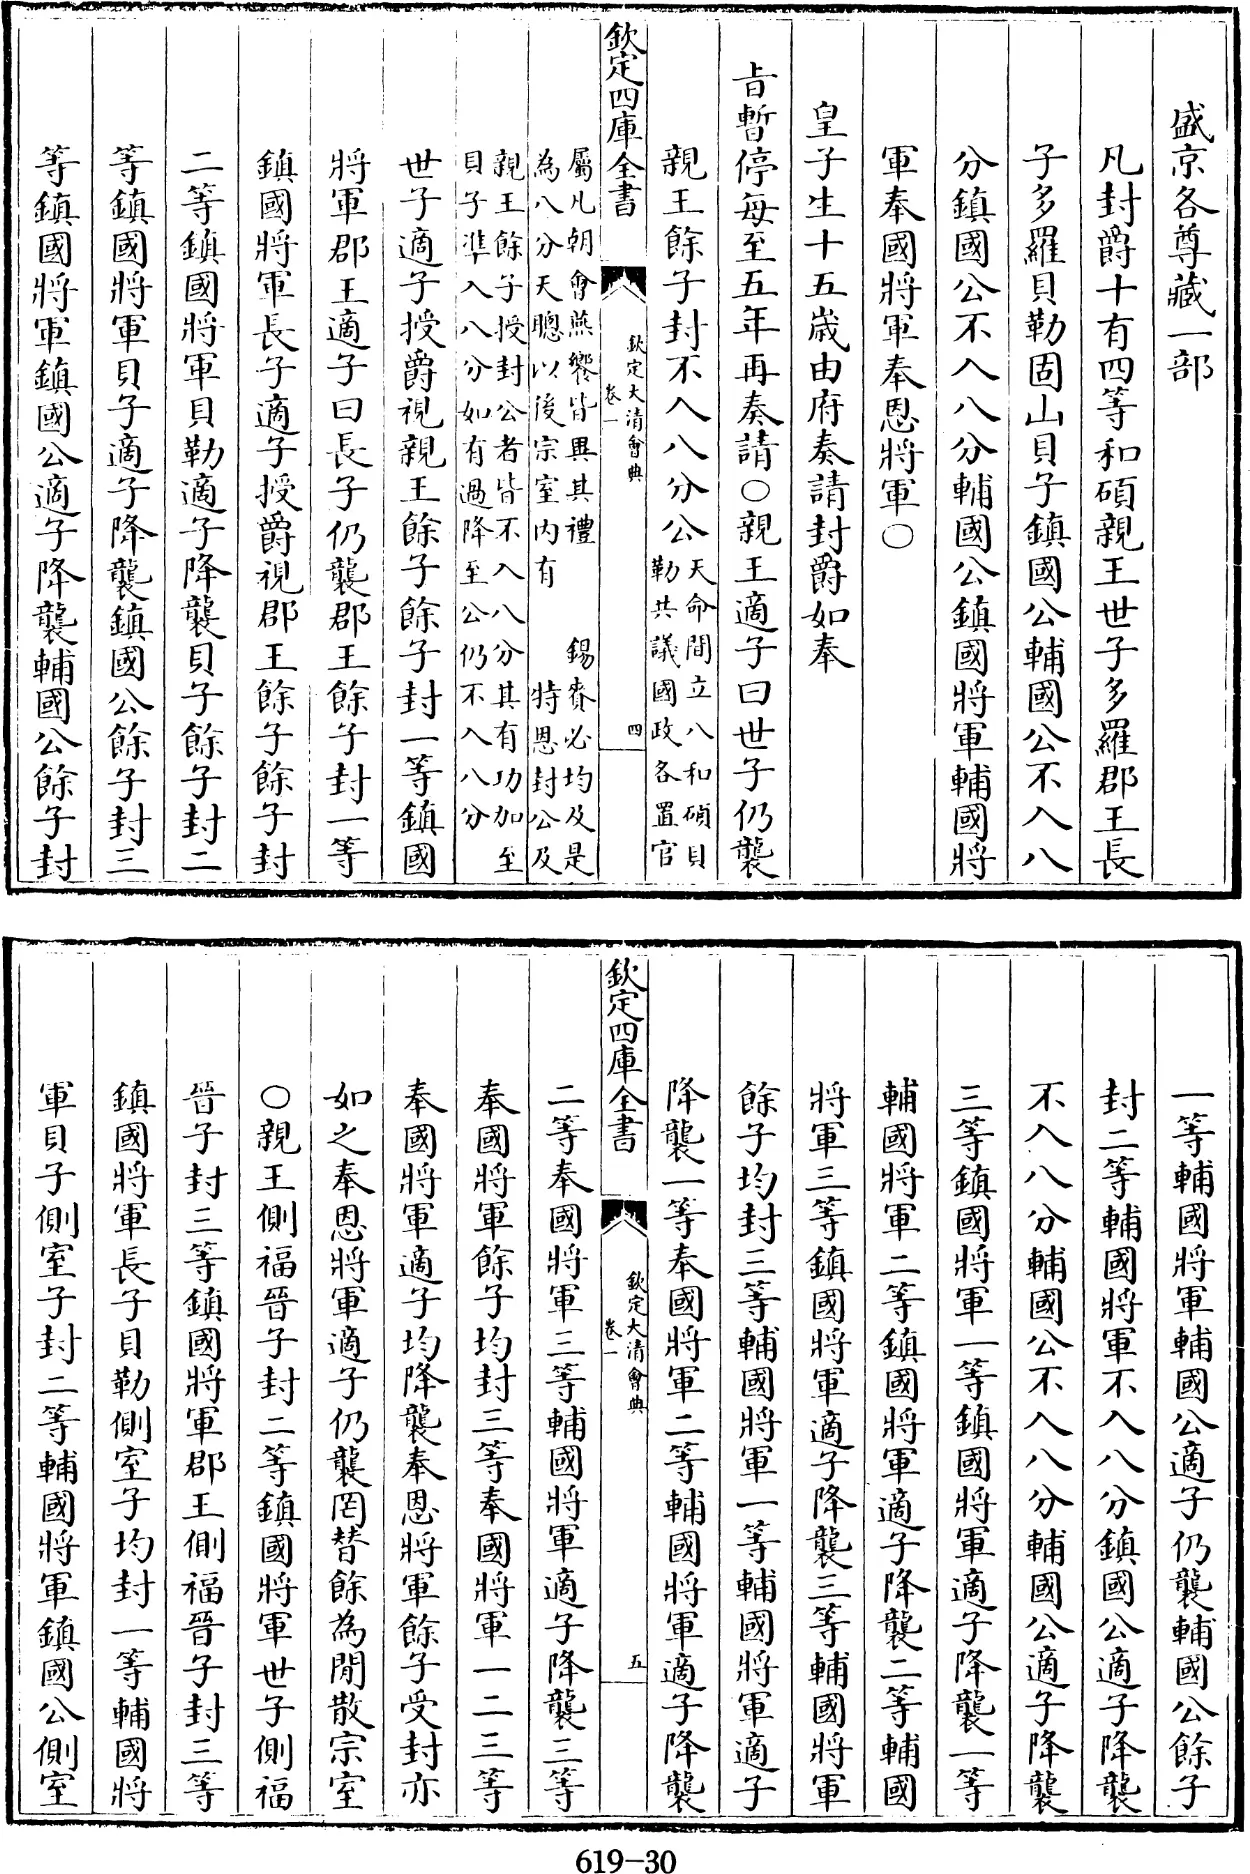 盛京各尊藏一部
凡封爵十有四等和碩親王世子多羅郡王長
子多羅貝勒固山貝子鎮國公輔國公不入八
分鎮國公不入八分輔國公鎮國將軍輔國將
軍奉國將軍奉恩將軍〇
皇子生十五歲由府奏請封爵如奉
旨暫停每至五年再奏請〇親王適子曰世子仍襲
親王餘子封不入八分公
天命間立八和碩貝
勒共議國政各置官
欽定四庫全書
欽定大清會典
卷一
四
屬凡朝會燕饗皆異其禮 錫賚必均及是
為八分天聰以後宗室内有 特恩封公及
親王餘子授封公者皆不入八分其有功加至
貝子準入八分如有過降至公仍不入八分
世子適子授爵視親王餘子餘子封一等鎮國
將軍郡王適子曰長子仍襲郡王餘子封一等
鎮國將軍長子適子授爵視郡王餘子餘子封
二等鎮國將軍貝勒適子降襲貝子餘子封二
等鎮國將軍貝子適子降襲鎮國公餘子封三
等鎮國將軍鎮國公適子降襲輔國公餘子封
一等輔國將軍輔國公適子仍襲輔國公餘子
封二等輔國將軍不入八分鎮國公適子降襲
不入八分輔國公不入八分輔國公適子降襲
三等鎮國將軍一等鎮國將軍適子降襲一等
輔國將軍二等鎮國將軍適子降襲二等輔國
將軍三等鎮國將軍適子降襲三等輔國將軍
餘子均封三等輔國將軍一等輔國將軍適子
降襲一等奉國將軍二等輔國將軍適子降襲
欽定四庫全書
欽定大清會典
卷一
五
二等奉國將軍三等輔國將軍適子降襲三等
奉國將軍餘子均封三等奉國將軍一二三等
奉國將軍適子均降襲奉恩將軍餘子受封亦
如之奉恩將軍適子仍襲罔替餘為閒散宗室
〇親王側福晉子封二等鎮國將軍世子側福
晉子封三等鎮國將軍郡王側福晉子封三等
鎮國將軍長子貝勒側室子均封一等輔國將
軍貝子側室子封二等輔國將軍鎮國公側室
619-30